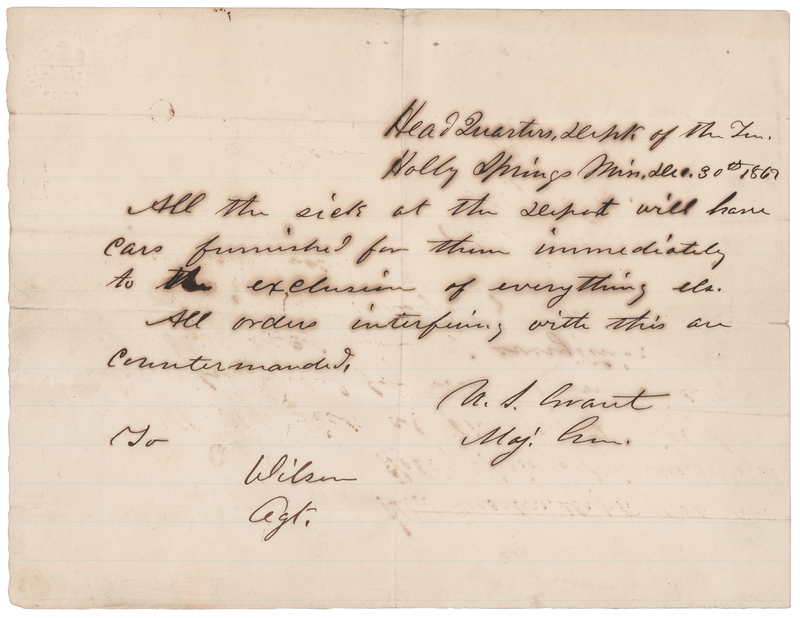 Head Quarters, Dept. of the Ten.
Holly Springs Miss. Dec. 30th 1862
All the sick at the Depot will have
cars furnished for them immediately
to the exclusion of everything els.
All orders interfering with this are
countermanded.
U. S. Grant
Maj. Gen.
To
Wilson
Agt.